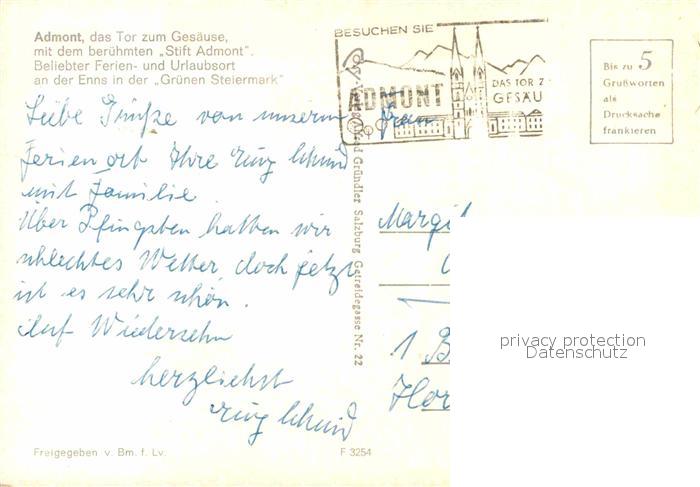 Admont, das Tor zum Gesäuse,
mit dem berühmten „Stift Admont".
Beliebter Ferien- und Urlaubsort
an der Enns in der „Grünen Steiermark"
BESUCHEN SIE
ADMONT
DAS TOR Z
GESÄU
Bis zu 5
Grußworten
als
Drucksache
frankieren
Liebe Grüße von unserem
Ferienort Ihre
mit Familie.
Über Pfingsten hatten wir
schlechtes Wetter, doch jetzt
ist es sehr schön.
Auf Wiedersehn
herzlichst
Gründler Salzburg Getreidegasse Nr. 22
Margi
1 B
Hor
privacy protection
Datenschutz
Freigegeben v. Bm. f. Lv.
F 3254